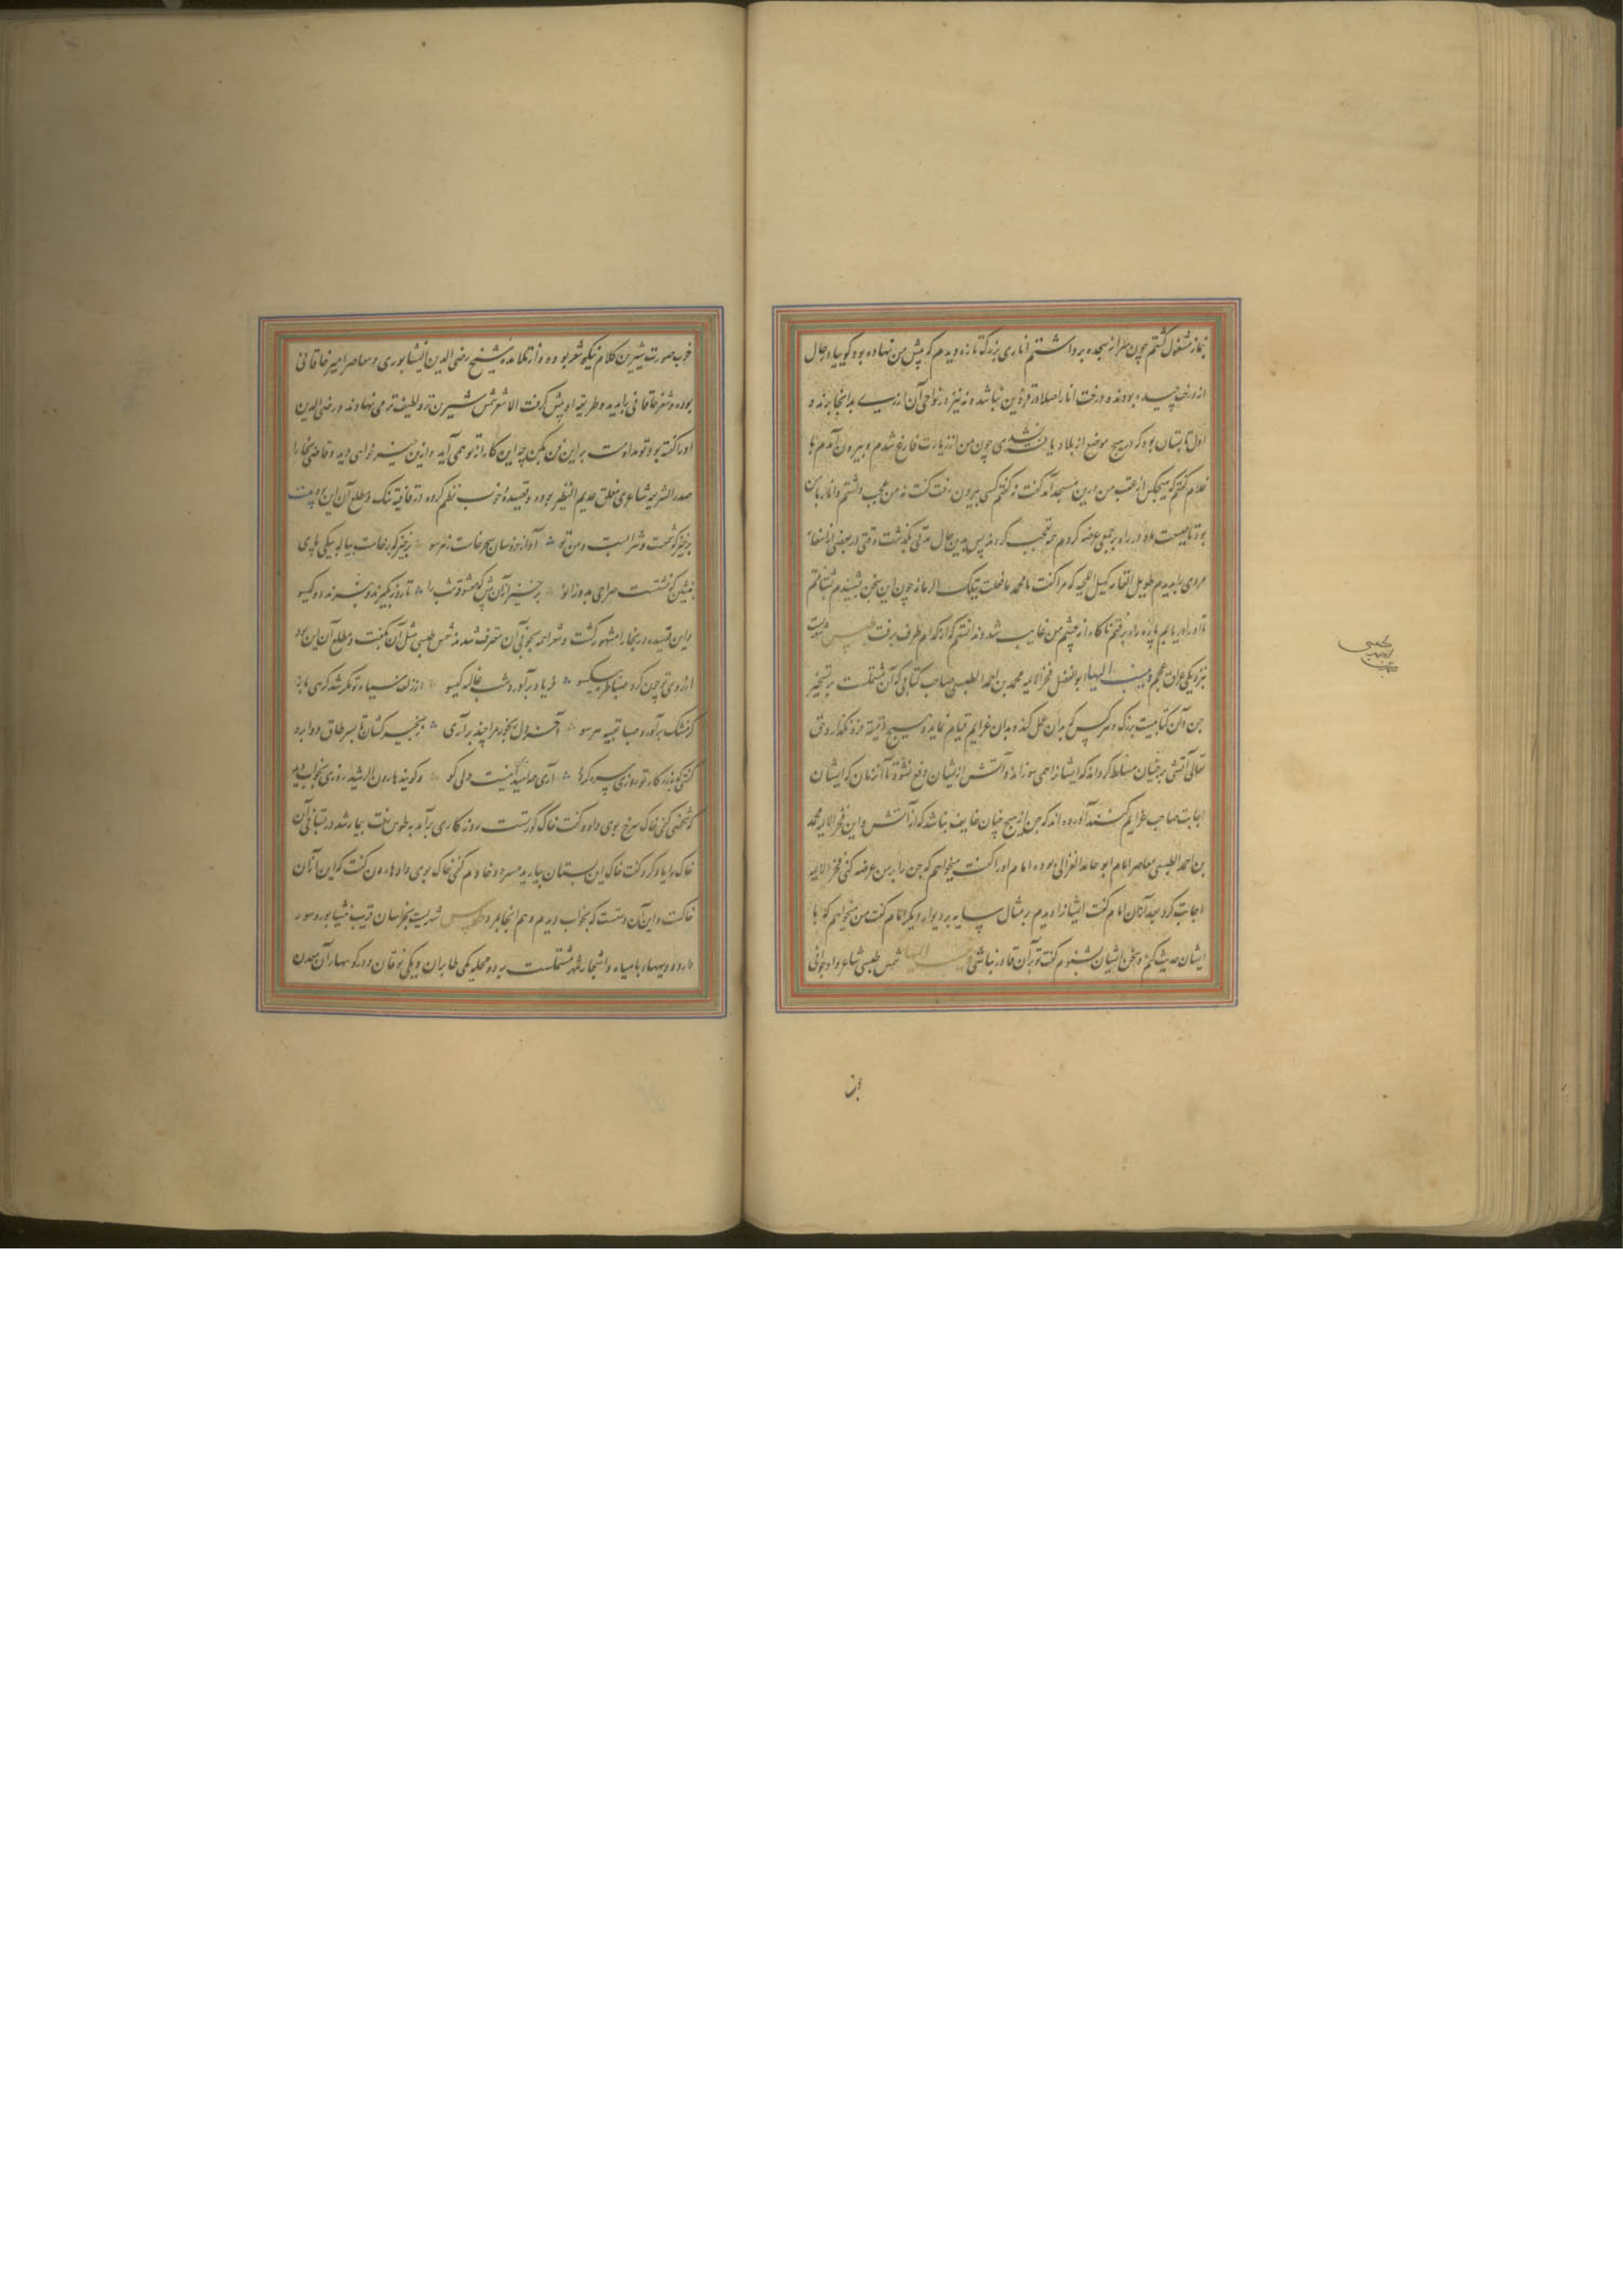 نماز مشغول گشتم چون سر از سجده برداشتم اناری بزرگ تازه دیدم که پیش من نهاده بود گویا در حال
از درخت چیده بودند و درخت انار اصلا در قزوین نباشد و نه نیز در نواحی آن از زمین بدانجا برند و
اول تابستان بود که در هیچ موضع از بلاد یافت نشدی چون من از زیارت فارغ شدم و بیرون آمدم با
غلام گفتم که هیچکس از عقب من درین مسجد آمد گفت نه گفتم کسی بیرون رفت گفت نه من عجب داشتم و انار با من
بود تا در راه بر جمعی عرضه کردم همه تعجب کردند پس برین حال مدتی بگذشت وقتی در بعضی از
مردی را دیدم طویل القامه که مرا گفت یا محمد ما فعلت بتلک الرمانه چون این سخن شنیدم شتافتم
تا او را دریابم پاره راه برفتم ناگاه از چشم من غایب شد و ندانستم که از کدام طرف برفت طبس شهریست
بنزدیکی میان عجم و ینسب الیها ابوالفضل فخر الایمه محمد بن احمد الطبسی صاحب کتابی که آن مشتملست بر تسخیر
جن و آن کتابیست بزرگ و هر کس که بدان عمل کند و بدان عزایم قیام نماید و هیچ دقیقه فرو نگذارد حق
تعالی آتشی بر جنیان مسلط گرداند که ایشانرا همی سوزاند و آتش از ایشان دفع نشود تا آنزمان که ایشان
اجابت صاحب عزایم کنند آورده اند که جن از هیچ چنان خایف نباشد که از آتش و این فخر الایمه محمد
بن احمد الطبسی معاصر امام ابو حامد الغزالی بوده امام او را گفت میخواهم که جن را بر من عرضه کنی فخر الایمه
اجابت کرد بعد از آن امام گفت ایشانرا دیدم بر مثال سایه بر دیوار دیگر امام گفت من میخواهم که با
ایشان حدیث کنم و سخن ایشان بشنوم گفت تو بر آن قادر نباشی الیها شمس طبسی شاعر و او جوانی
خوب صورت شیرین کلام نیکو شعر بوده و از تلامذه شیخ رضی الدین النیشابوری و معاصر امیر خاقانی
بوده و شعر خاقانی را دیده و طریقه او پیش گرفت الا شعر شمس شیرین تر و لطیف تر می نهاوند و رضی الدین
او را گفته بود تو مداومت بر این فن بکن چه این کار از تو همی آید و ازین خیر خواهی دید و قاضی بخارا
صدر الشریعه شاعری مفلق عدیم النظیر بوده و قصیده خوب نظم کرده در قافیه تنگ و مطلع آن این دو بیت
برخیز که شمعست و شرابست و من و تو آواز خروسان سحر خاست ز هر سو برخیز که برخاست پیاله بیکی پای
بنشین که نشست صراحی بدو زانو برخیز از آن پیش که معشوقه شب را تا روز بگیرند و ببرند دو گیسو
و این قصیده در بخارا مشهور گشت و شعرا همه بخوبی آن معترف شدند شمس طبسی مثل آن بگفت و مطلع آن این بود
از روی تو چون کرد صبا طره بیکسو فریاد برآورد شب غالیه گیسو از زلف سیاه تو مگر شد گرهی باز
کز مشک برآورد صبا تعبیه هر سو آخر دل رنجور مرا چند برآری زنجیر کشان تا بسر طاق دو ابرو
گفتی که بزر کار تو روزی سره گردد آری همه امید اینست ولی کو و گویند هارون الرشید روزی بخواب دید
که شخصی کفی خاک سرخ بوی داد و گفت خاک گور تست روزگاری برآمد به طوس رفت بیمار شد در بستانی آن
خاک را یاد کرد گفت خاک این بستان بیارید مسرور خادم کفی خاک بوی داد هارون گفت که این از آن
خاکست و این آن دستست که بخواب دیدم و هم آنجا مرد طوس شهریست بخراسان قریب نیشابور و سور
دارد و دیهها و با میاه و اشجار شهر مشتملست بر دو محله یکی طابران و یکی نوقان و در کوهسار آن معدن
بن